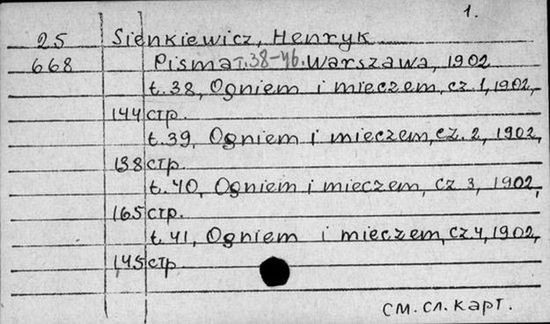 1.
25 Sienkiewicz, Henryk
668 Pisma T.38-46. Warszawa, 1902
t. 38, Ogniem i mieczem, cz. 1, 1902,
144 стр.
t. 39, Ogniem i mieczem, cz. 2, 1902,
138 стр.
t. 40, Ogniem i mieczem, cz 3, 1902,
165 стр.
t. 41, Ogniem i mieczem, cz 4, 1902,
145 стр
см. сл. карт.